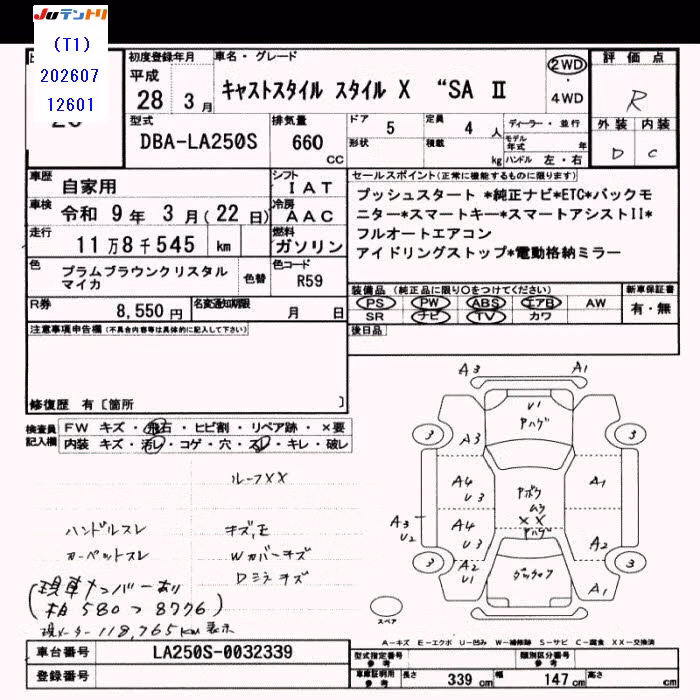 JUテントリ
(T1)
202607
12601
初度登録年月 車名・グレード 評価点
平成 28 3月 キャストスタイル スタイル X “SA II 2WD・4WD R
型式 排気量 ドア 5 定員 4 人 ディーラー・並行 外装 内装
DBA-LA250S 660 CC 形状 積載 kg モデル年式 年 ハンドル 左・右 D C
車歴 自家用 シフト IAT セールスポイント(正常に機能するものに限ります)
車検 令和 9年 3月(22日) 冷房 AAC プッシュスタート *純正ナビ*ETC*バックモ
ニター*スマートキー*スマートアシストII*
走行 11万8千545 km 燃料 ガソリン フルオートエアコン
アイドリングストップ*電動格納ミラー
色 プラムブラウンクリスタル 色替 色コード
マイカ R59
装備品(純正品に限り○をつけてください) 新車保証書
R券 8,550円 名変通知期限 月 日 PS PW ABS エアB AW 有・無
SR ナビ TV カワ
注意事項申告欄(不具合内容等は具体的に記入して下さい) 後日品
修復歴 有〔箇所 〕
検査員 FW キズ・飛石・ヒビ割・リペア跡・×要
記入欄 内装 キズ・汚レ・コゲ・穴・スレ・キレ・破レ
ルーフXX
ハンドルスレ キズ,モ
カーペットスレ Wカバーキズ
Dミラキズ
(現車ナンバーあり
580 つ 8776)
現メーター118,765km表示
A3 A1
U1
ヤハゲ
3 A3 3
A4 U3 A1
XX
A3 U2 A4 U3 ヤハゲ A2
3 A2 U1 A1 3
スペア
A-キズ E-エクボ U-凹み W-補修跡 S-サビ C-腐食 XX-交換済
車台番号 LA250S-0032339 型式指定番号 参考 類別区分番号 参考
登録番号 車庫証明用 参考 長さ 339 cm 幅 147 cm 高さ cm